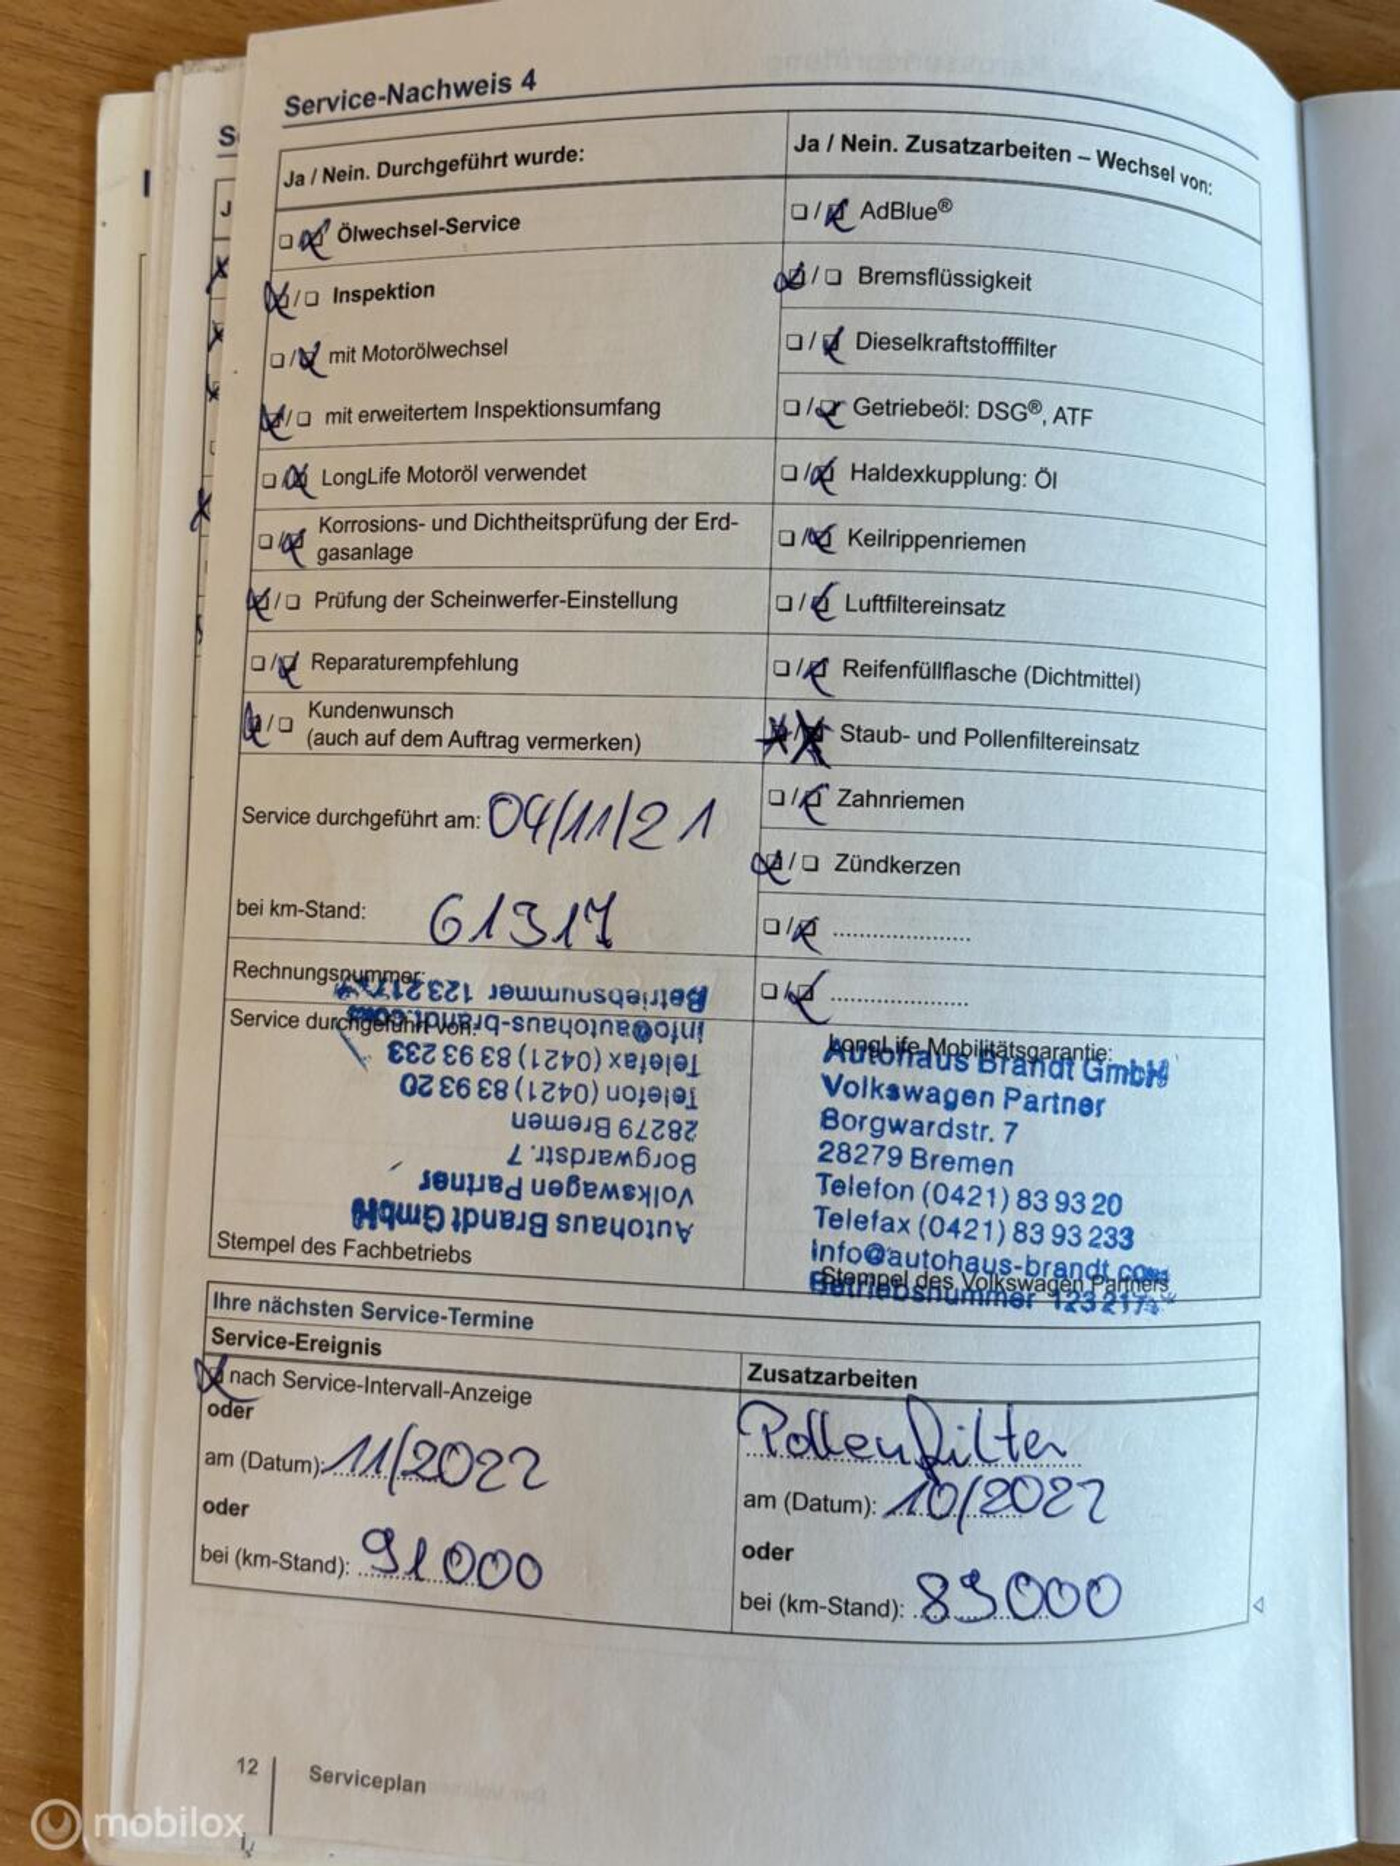 Service-Nachweis 4
Ja / Nein. Durchgeführt wurde:
Ölwechsel-Service
Inspektion
mit Motorölwechsel
mit erweitertem Inspektionsumfang
LongLife Motoröl verwendet
Korrosions- und Dichtheitsprüfung der Erd-
gasanlage
Prüfung der Scheinwerfer-Einstellung
Reparaturempfehlung
Kundenwunsch
(auch auf dem Auftrag vermerken)
Service durchgeführt am: 04/11/21
bei km-Stand: 61317
Rechnungsnummer:
Service durchgeführt von:
Betriebsnummer 123 217
info@autohaus-brandt.com
Telefax (0421) 83 93 233
Telefon (0421) 83 93 20
28279 Bremen
Borgwardstr. 7
Volkswagen Partner
Autohaus Brandt GmbH
Stempel des Fachbetriebs
Ja / Nein. Zusatzarbeiten – Wechsel von:
AdBlue®
Bremsflüssigkeit
Dieselkraftstofffilter
Getriebeöl: DSG®, ATF
Haldexkupplung: Öl
Keilrippenriemen
Luftfiltereinsatz
Reifenfüllflasche (Dichtmittel)
Staub- und Pollenfiltereinsatz
Zahnriemen
Zündkerzen
LongLife Mobilitätsgarantie:
Autohaus Brandt GmbH
Volkswagen Partner
Borgwardstr. 7
28279 Bremen
Telefon (0421) 83 93 20
Telefax (0421) 83 93 233
Info@autohaus-brandt.com
Stempel des Volkswagen Partners
Betriebsnummer 123 217
Ihre nächsten Service-Termine
Service-Ereignis
nach Service-Intervall-Anzeige
oder
am (Datum): 11/2022
oder
bei (km-Stand): 91000
Zusatzarbeiten
Pollenfilter
am (Datum): 10/2022
oder
bei (km-Stand): 89000
12
Serviceplan
mobilox